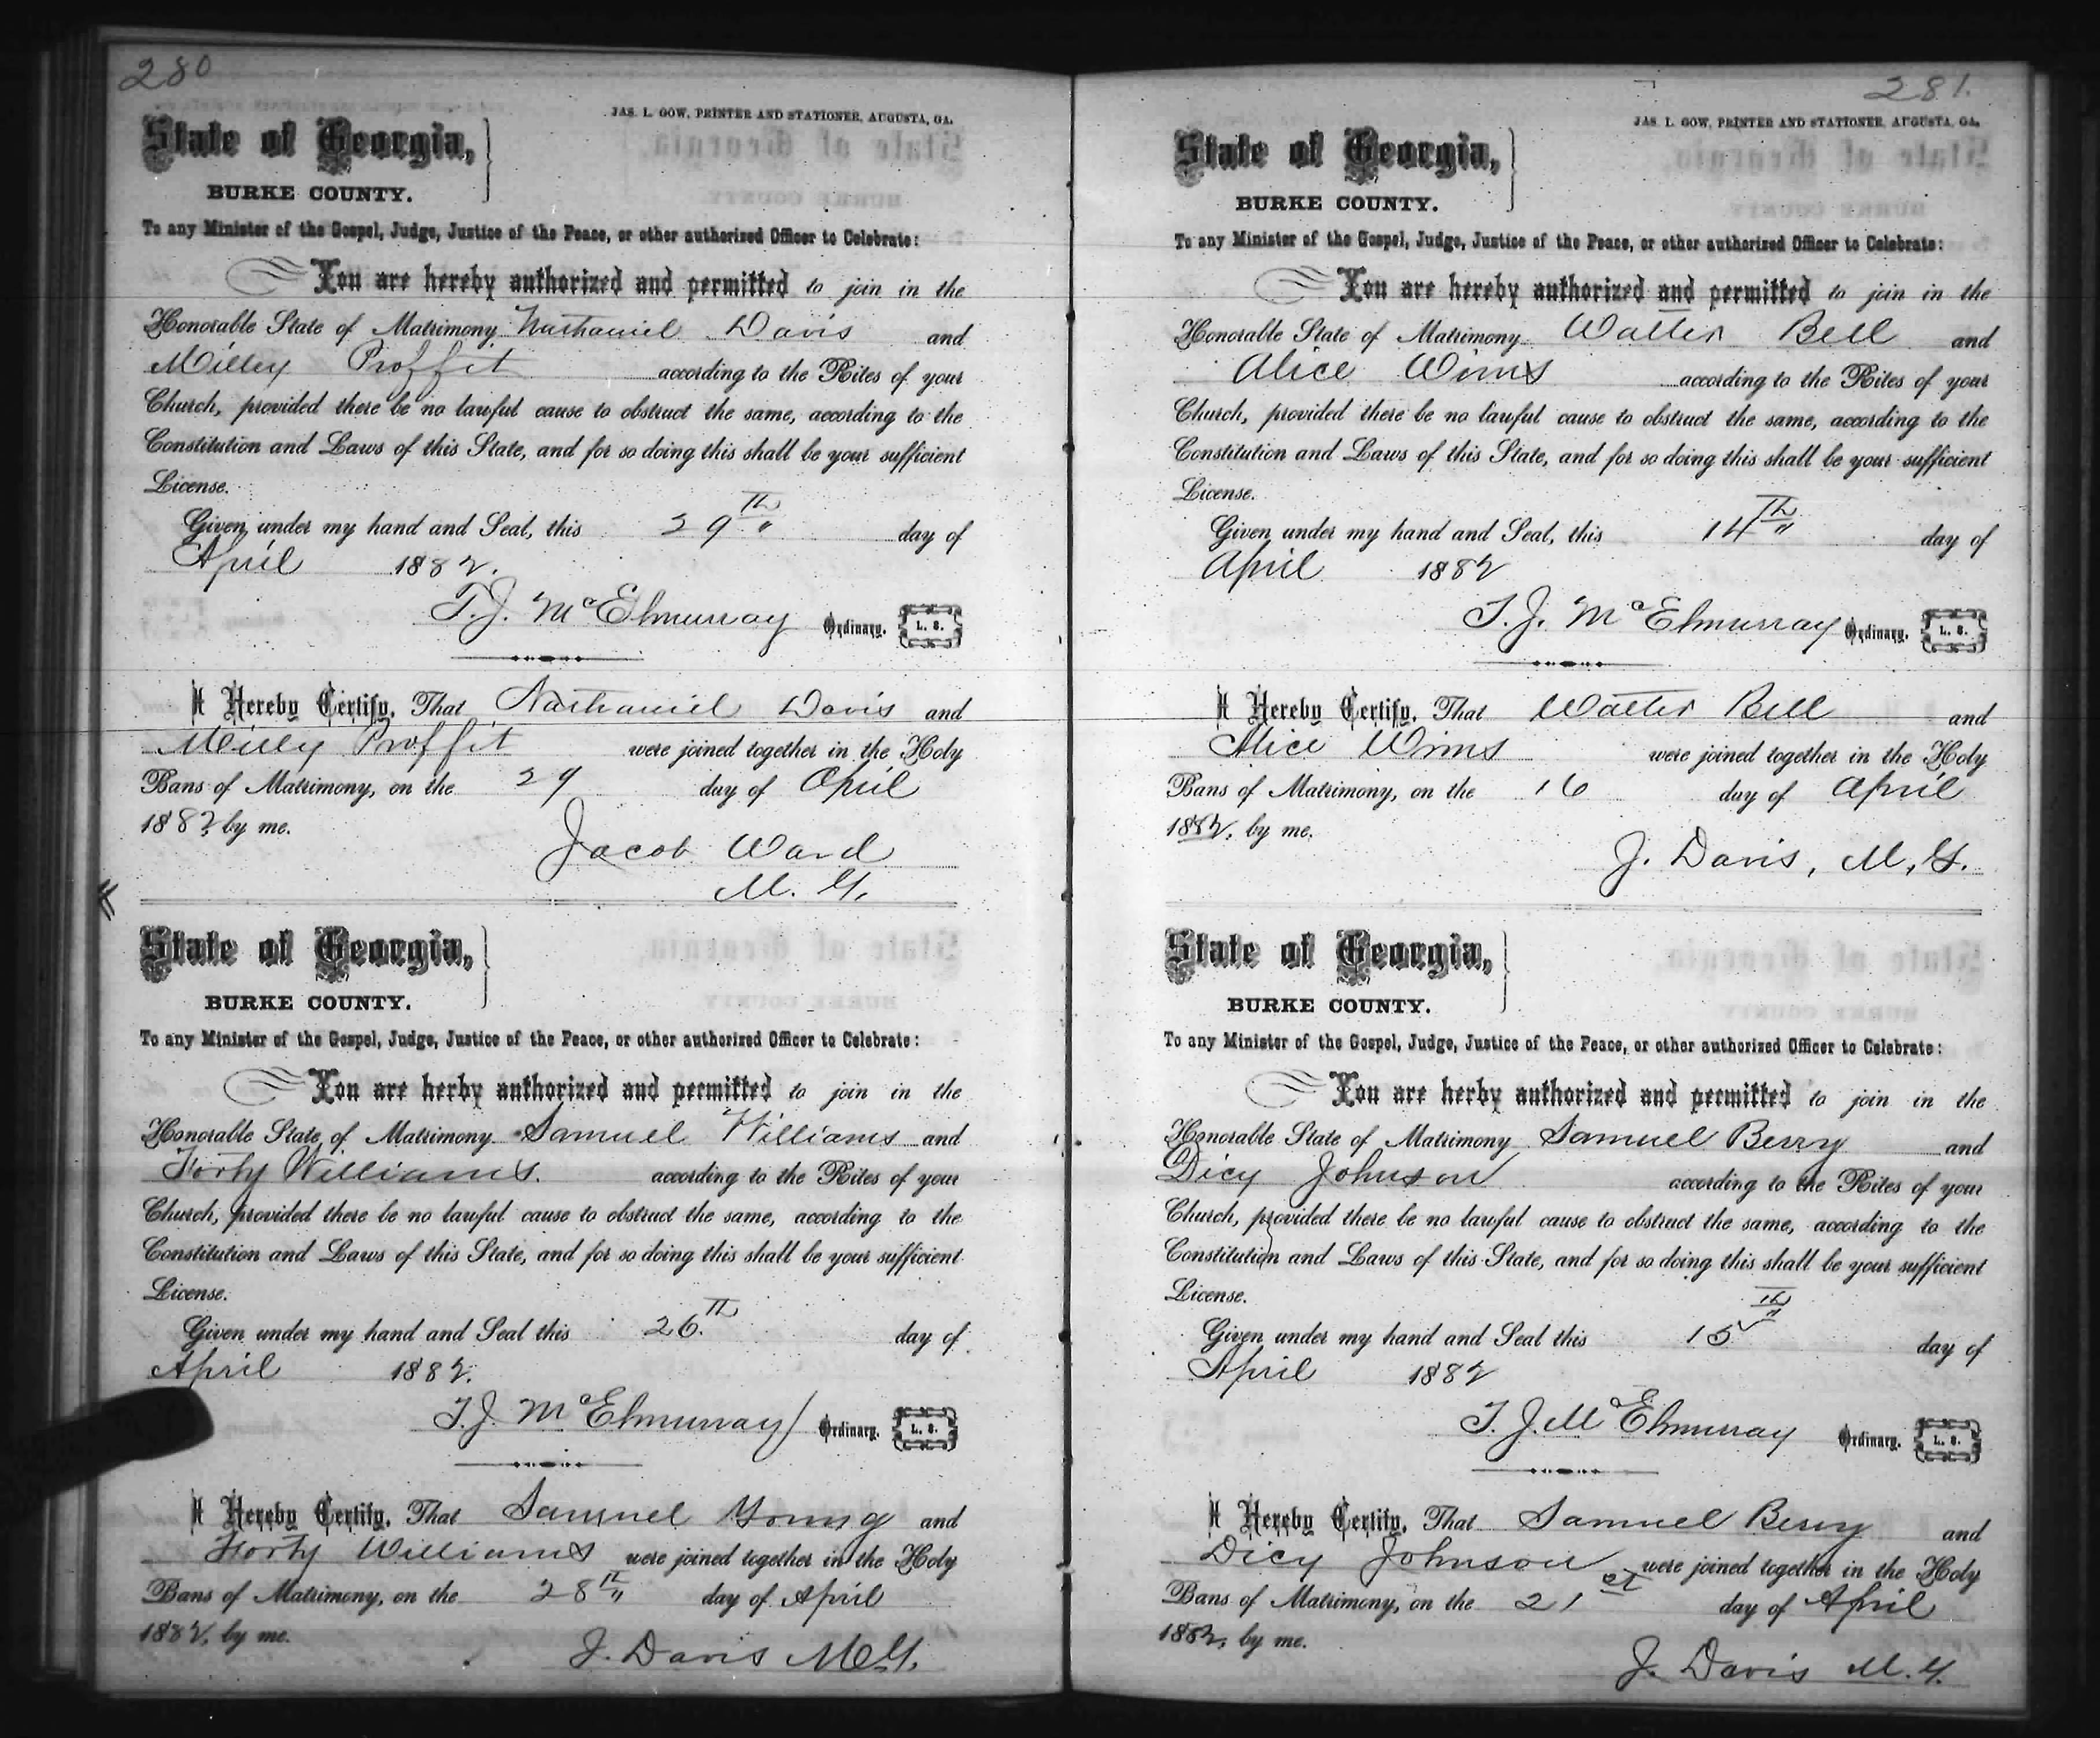 280
JAS. L. GOW, PRINTER AND STATIONER, AUGUSTA, GA.
State of Georgia,
BURKE COUNTY.
To any Minister of the Gospel, Judge, Justice of the Peace, or other authorized Officer to Celebrate:
You are hereby authorized and permitted to join in the
Honorable State of Matrimony Nathaniel Davis and
Milley Proffit according to the Rites of your
Church, provided there be no lawful cause to obstruct the same, according to the
Constitution and Laws of this State, and for so doing this shall be your sufficient
License.
Given under my hand and Seal, this 29th day of
April 1882.
T. J. McElmurray Ordinary. L. S.
I Hereby Certify, That Nathaniel Davis and
Milly Proffit were joined together in the Holy
Bans of Matrimony, on the 29 day of April
1882, by me.
Jacob Ward
M. G.
State of Georgia,
BURKE COUNTY.
To any Minister of the Gospel, Judge, Justice of the Peace, or other authorized Officer to Celebrate:
You are herby authorized and permitted to join in the
Honorable State of Matrimony Samuel Williams and
Forty Williams. according to the Rites of your
Church, provided there be no lawful cause to obstruct the same, according to the
Constitution and Laws of this State, and for so doing this shall be your sufficient
License.
Given under my hand and Seal this 26th day of
April 1882.
T. J. McElmurray Ordinary. L. S.
I Hereby Certify, That Samuel Young and
Forty Williams were joined together in the Holy
Bans of Matrimony, on the 28th day of April
1882, by me.
J. Davis M.G.
281.
JAS. L. GOW, PRINTER AND STATIONER, AUGUSTA, GA.
State of Georgia,
BURKE COUNTY.
To any Minister of the Gospel, Judge, Justice of the Peace, or other authorized Officer to Celebrate:
You are hereby authorized and permitted to join in the
Honorable State of Matrimony Walter Bell and
Alice Wims according to the Rites of your
Church, provided there be no lawful cause to obstruct the same, according to the
Constitution and Laws of this State, and for so doing this shall be your sufficient
License.
Given under my hand and Seal, this 14th day of
April 1882
T. J. McElmurray Ordinary. L. S.
I Hereby Certify, That Walter Bell and
Alice Wims were joined together in the Holy
Bans of Matrimony, on the 16 day of April
1882, by me.
J. Davis, M. G.
State of Georgia,
BURKE COUNTY.
To any Minister of the Gospel, Judge, Justice of the Peace, or other authorized Officer to Celebrate:
You are herby authorized and permitted to join in the
Honorable State of Matrimony Samuel Berry and
Dicy Johnson according to the Rites of your
Church, provided there be no lawful cause to obstruct the same, according to the
Constitution and Laws of this State, and for so doing this shall be your sufficient
License.
Given under my hand and Seal this 15th day of
April 1882
T. J. McElmurray Ordinary. L. S.
I Hereby Certify, That Samuel Berry and
Dicy Johnson were joined together in the Holy
Bans of Matrimony, on the 21st day of April
1882, by me.
J. Davis M. G.